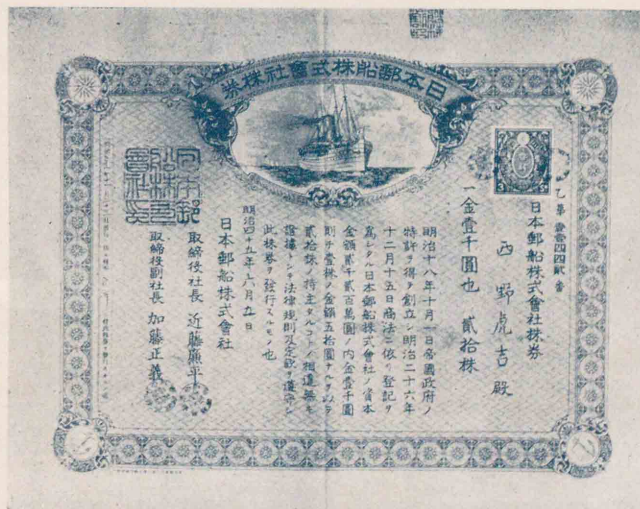 日本郵船株式會社株券
日本郵船株式會社株券
西野虎吉殿
一金壹千圓也 貳拾株
明治十八年十月一日帝國政府ノ
特許ヲ得テ創立シ明治二十六年
十二月十五日商法ニ依リ登記ヲ
爲シタル日本郵船株式會社ノ資本
金額貳千貳百萬圓ノ内金壹千圓
則チ壹株ノ金額五拾圓
貳拾株ノ持主タルコト相違無キ
證據トシテ法律規則及定款ヲ遵守シ
此株券ヲ發行スルモノ也
明治四十五年六月五日
日本郵船株式會社
取締役社長 近藤廉平
取締役副社長 加藤正義